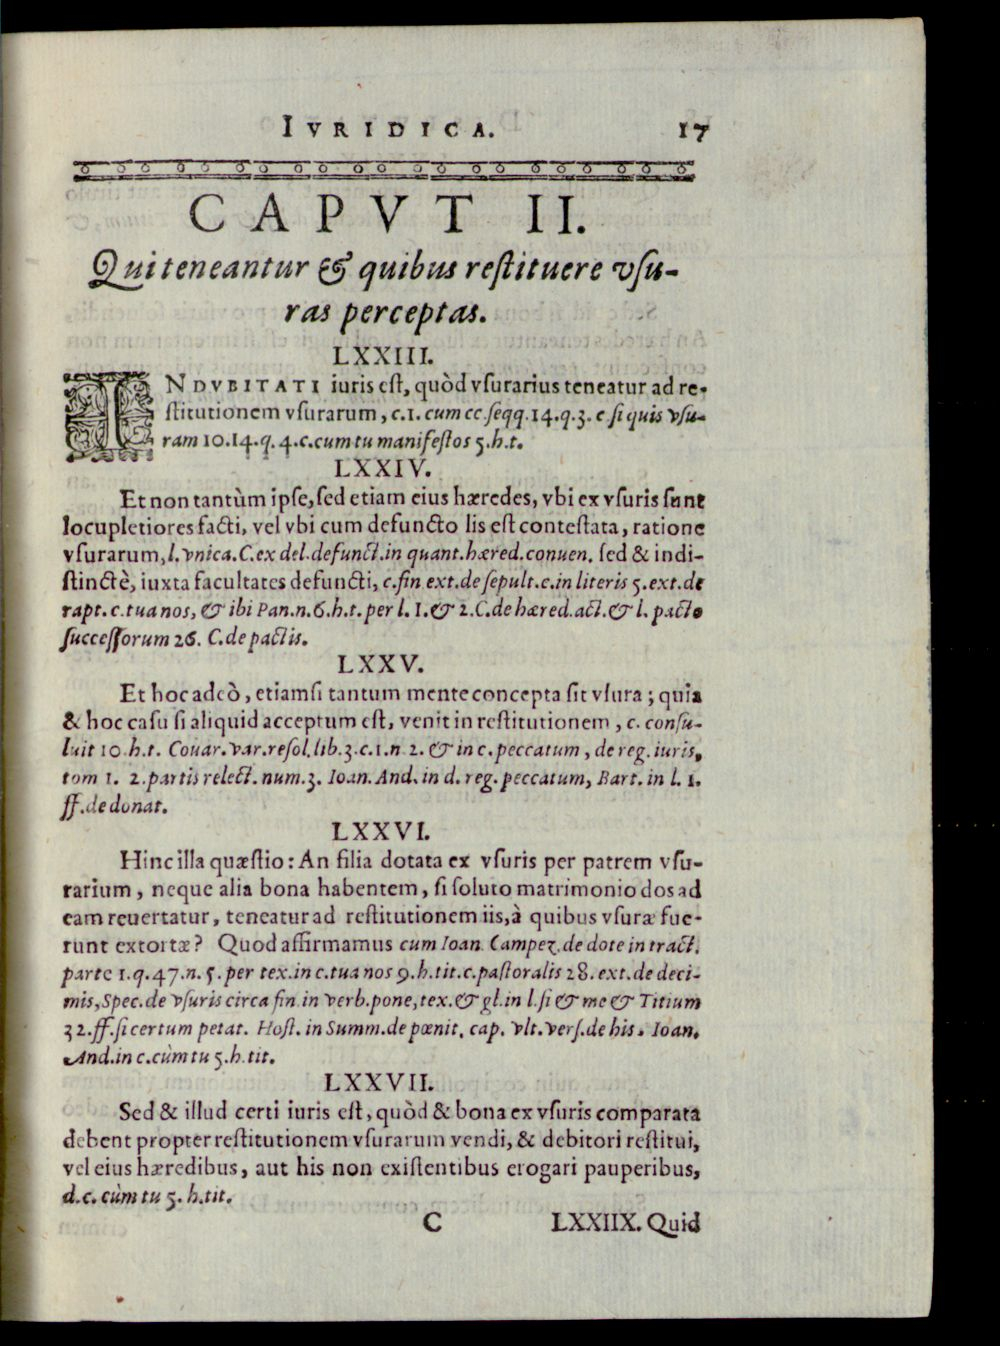 IVRIDICA. 17
CAPVT II.
Qui teneantur & quibus reſtituere vſu-
ras perceptas.
LXXIII.
INDVBITATI iuris eſt, quòd vſurarius teneatur ad re-
ſtitutionem vſurarum, c. 1. cum cc. ſeqq. 14. q. 3. c ſi quis vſu-
ram 10. 14. q. 4. c. cum tu manifeſtos 5. h. t.
LXXIV.
Et non tantùm ipſe, ſed etiam eius hæredes, vbi ex vſuris ſunt
locupletiores facti, vel vbi cum defuncto lis eſt conteſtata, ratione
vſurarum, l. vnica. C. ex del. defunct. in quant. hæred. conuen. ſed & indi-
ſtinctè, iuxta facultates defuncti, c. fin ext. de ſepult. c. in literis 5. ext. de
rapt. c. tua nos, & ibi Pan. n. 6. h. t. per l. 1. & 2. C. de hæred. act. & l. pacto
ſucceſſorum 26. C. de pactis.
LXXV.
Et hoc adeò, etiamſi tantum mente concepta ſit vſura; quia
& hoc caſu ſi aliquid acceptum eſt, venit in reſtitutionem, c. conſu-
luit 10. h. t. Couar. var. reſol. lib. 3. c. 1. n 2. & in c. peccatum, de reg. iuris,
tom 1. 2. partis relect. num. 3. Ioan. And. in d. reg. peccatum, Bart. in l. 1.
ff. de donat.
LXXVI.
Hinc illa quæſtio: An filia dotata ex vſuris per patrem vſu-
rarium, neque alia bona habentem, ſi ſoluto matrimonio dos ad
eam reuertatur, teneatur ad reſtitutionem iis, à quibus vſuræ fue-
runt extortæ? Quod affirmamus cum Ioan. Campez. de dote in tract.
parte 1. q. 47. n. 5. per tex. in c. tua nos 9. h. tit. c. paſtoralis 28. ext. de deci-
mis, Spec. de vſuris circa fin. in verb. pone, tex. & gl. in l. ſi & me & Titium
32. ff. ſi certum petat. Hoſt. in Summ. de pœnit. cap. vlt. verſ. de his. Ioan.
And. in c. cùm tu 5. h. tit.
LXXVII.
Sed & illud certi iuris eſt, quòd & bona ex vſuris comparata
debent propter reſtitutionem vſurarum vendi, & debitori reſtitui,
vel eius hæredibus, aut his non exiſtentibus erogari pauperibus,
d. c. cùm tu 5. h. tit.
C LXXIIX. Quid